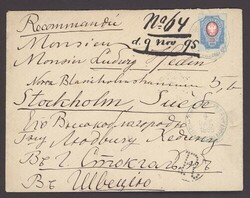 Recommandé
No 64
d. 9 nov. 95
Monsieur
Monsieur Ludvig Hedin
Nova Blasieholmshamnen 5, b
Stockholm, Suède
Его Высокоблагородію
Гну Людвигу Хедину
Въ г. Стокгольмъ
Въ Швецію